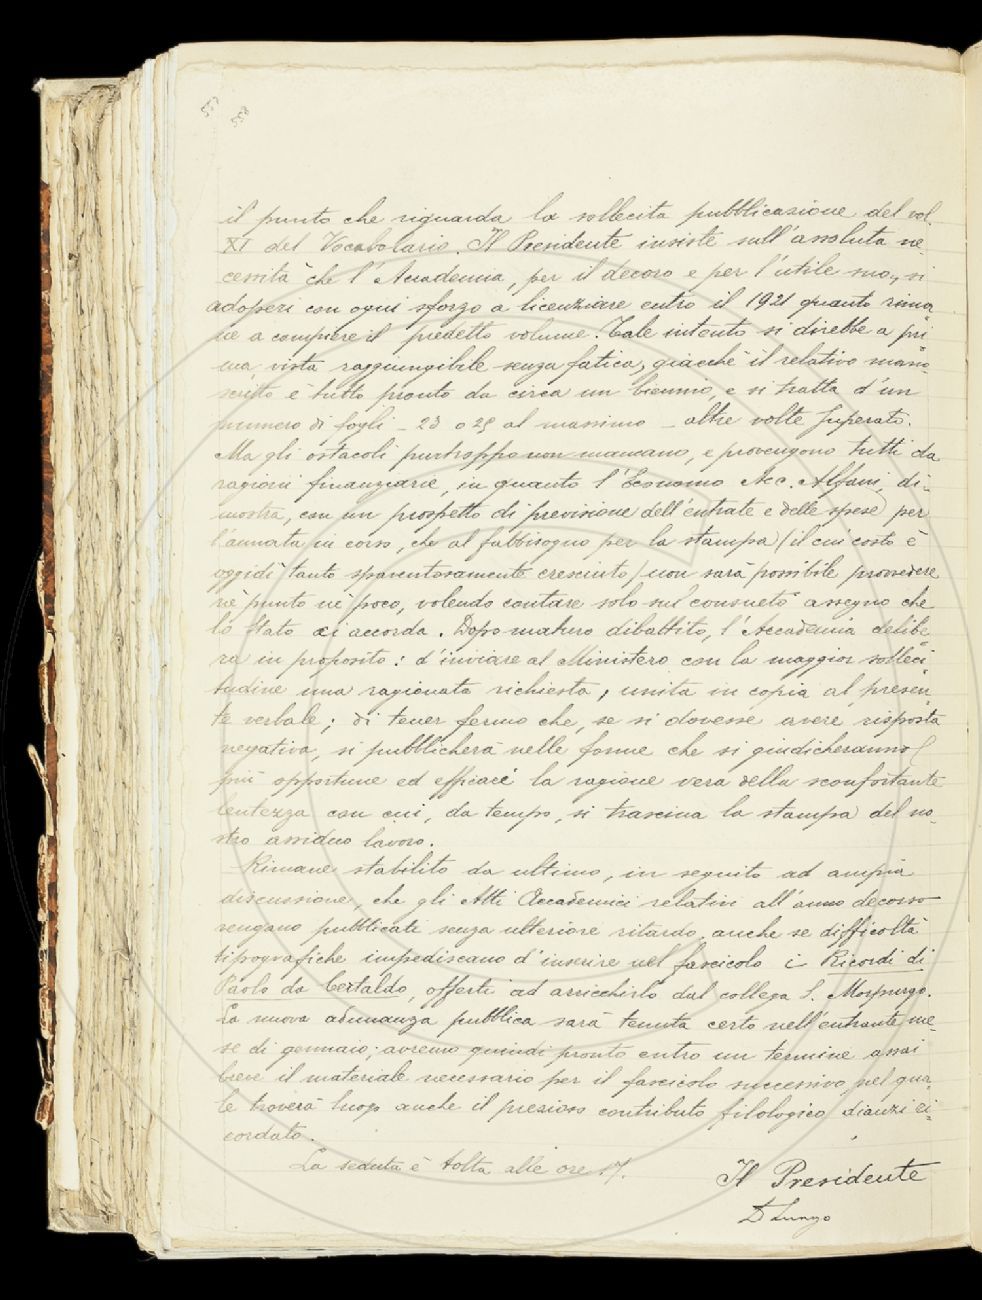 il punto che riguarda la sollecita pubblicazione del vol.
XI del Vocabolario. Il Presidente insiste sull'assoluta ne-
cessità che l'Accademia, per il decoro e per l'utile suo, si
adoperi con ogni sforzo a licenziare entro il 1921 quanto rima
ne a compiere il predetto volume. Tale intento si direbbe a pri
ma vista raggiungibile senza fatica, giacchè il relativo mano-
scritto è tutto pronto da circa un biennio, e si tratta d'un
numero di fogli - 23 o 25 al massimo - altre volte superato.
Ma gli ostacoli purtroppo non mancano, e provengono tutti da
ragioni finanziarie, in quanto l'Economo Acc. Alfani, di-
mostra, con un prospetto di previsione dell'entrate e delle spese per
l'annata in corso, che al fabbisogno per la stampa (il cui costo è
oggidì tanto spaventosamente cresciuto) non sarà possibile provvedere
nè punto nè poco, volendo contare solo sul consueto assegno che
lo Stato ci accorda. Dopo maturo dibattito, l'Accademia delibe
ra in proposito: d'inviare al Ministero con la maggior solleci
tudine una ragionata richiesta, unita in copia al presen
te verbale; di tener fermo che, se si dovesse avere risposta
negativa, si pubblicherà nelle forme che si giudicheranno
più opportune ed efficaci la ragione vera della sconfortante
lentezza con cui, da tempo, si trascina la stampa del no-
stro assiduo lavoro.
Rimane stabilito da ultimo, in seguito ad ampia
discussione, che gli Atti Accademici relativi all'anno decorso
vengano pubblicati senza ulteriore ritardo, anche se difficoltà
tipografiche impediscano d'inserire nel fascicolo i Ricordi di
Paolo da Certaldo, offerti ad arricchirlo dal collega S. Morpurgo.
La nuova adunanza pubblica sarà tenuta certo nell'entrante me-
se di gennaio; avremo quindi pronto entro un termine assai
breve il materiale necessario per il fascicolo successivo, nel qua-
le troverà luogo anche il prezioso contributo filologico dianzi ri-
cordato.
La seduta è tolta alle ore 17.
Il Presidente
D Lungo